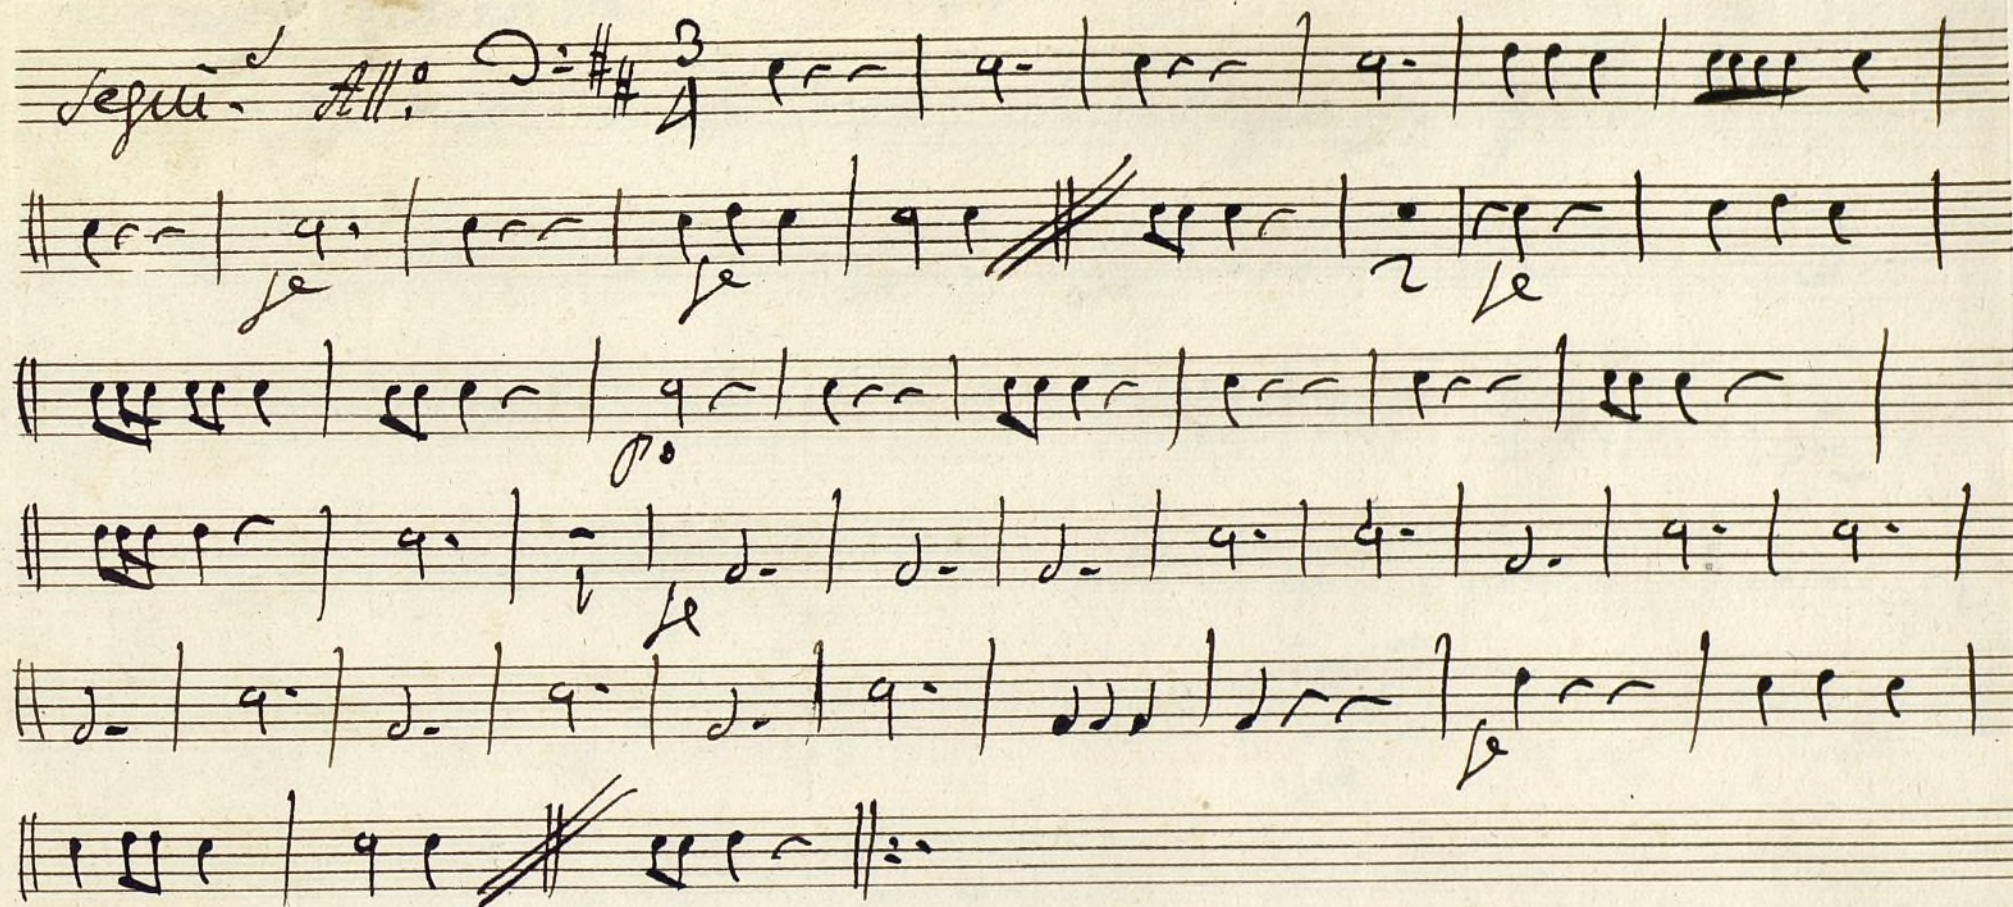 Segui. All.º 3 4
fe fe 2 fe
po
1 fe
fe